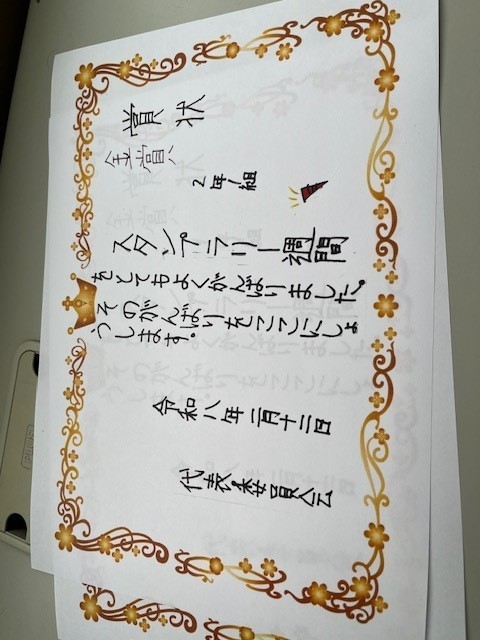 賞状
金賞
2年1組
スタンプラリー週間
をとてもよくがんばりました。
そのがんばりをここにしょ
うします。
令和八年二月十二日
代表委員会